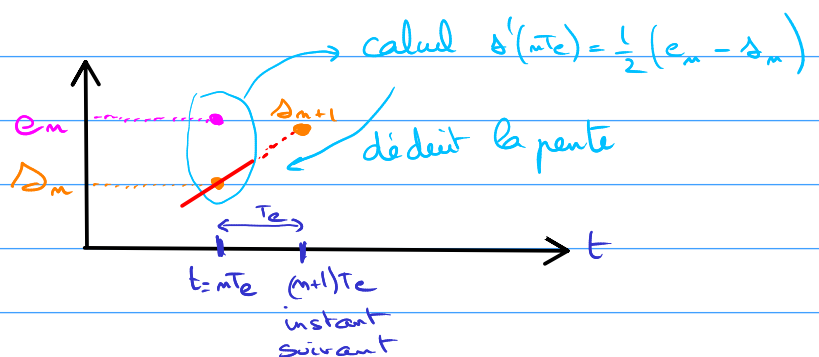 calcul s'(nTe) = 1/2 (en - sn)
sn+1
en
déduit la pente
sn
Te
t
t=nTe (n+1)Te
instant
suivant